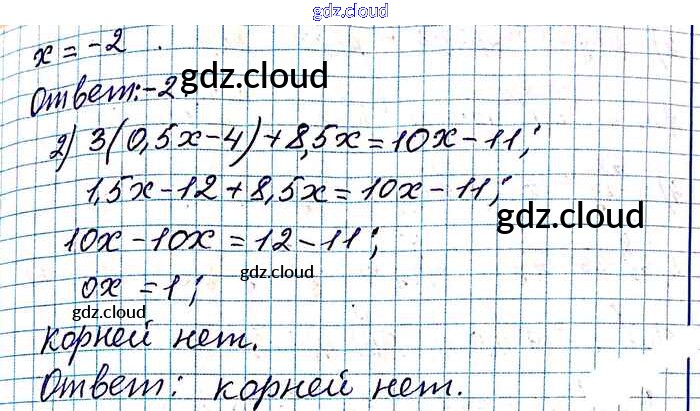 gdz.cloud
x = -2
Ответ: -2.
gdz.cloud
2) 3(0,5x-4)+8,5x=10x-11;
1,5x-12+8,5x=10x-11;
gdz.cloud
10x-10x=12-11;
gdz.cloud
0x=1;
корней нет.
Ответ: корней нет.